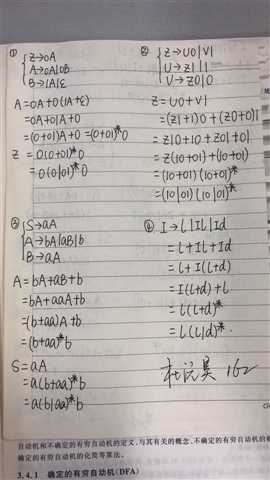 ①
Z→0A
A→0A|0B
B→1A|ε
A=0A+0(1A+ε)
=0A+01A+0
=(0+01)A+0=(0+01)*0
Z=0(0+01)*0
=0(0|01)*0
②
Z→U0|V1
U→Z1|1
V→Z0|0
Z=U0+V1
=(Z1+1)0+(Z0+0)1
=Z10+10+Z01+01
=Z(10+01)+(10+01)
=(10+01)(10+01)*
=(10|01)(10|01)*
③
S→aA
A→bA|aB|b
B→aA
A=bA+aB+b
=bA+aaA+b
=(b+aa)A+b
=(b+aa)*b
S=aA
=a(b+aa)*b
=a(b|aa)*b
④ I→l|Il|Id
=l+Il+Id
=l+I(l+d)
=I(l+d)+l
=l(l+d)*
=l(l|d)*.
162
自动机和不确定的有穷自动机的定义、与其有关的概念、不确定的有穷自动机的确
确定的有穷自动机的化简等算法。
3.4.1 确定的有穷自动机(DFA)